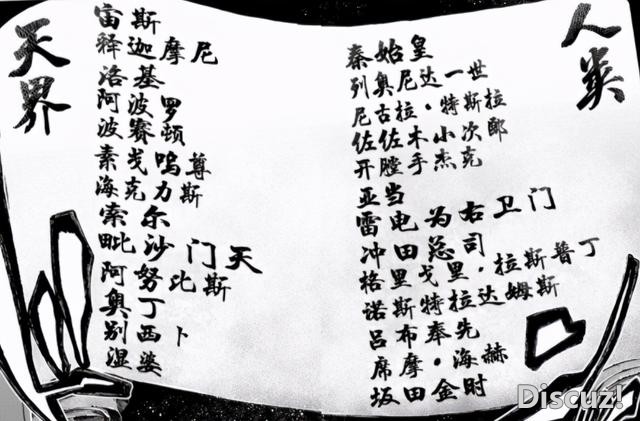 天界
宙斯
释迦摩尼
洛基
阿波罗
波赛顿
素戈呜尊
海克力斯
索尔
毗沙门天
阿努比斯
奥丁
别西卜
湿婆
人类
秦始皇
列奥尼达一世
尼古拉·特斯拉
佐佐木小次郎
开膛手杰克
亚当
雷电为右卫门
冲田总司
格里戈里·拉斯普丁
诺斯特拉达姆斯
吕布奉先
席摩·海赫
坂田金时
Discuz!